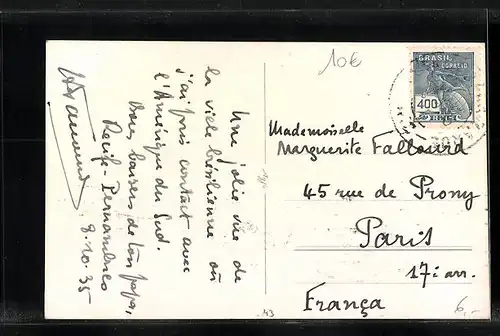 Une jolie vue de
la ville brésilienne où
j'ai pris contact avec
l'Amérique du Sud.
Bons baisers de ton papa,
Recife - Pernambuco
8.10.35
10€
BRASIL
CORREIO
400
RÉIS
Mademoiselle
Marguerite Fallourd
45 rue de Prony
Paris
17e arr.
França
43
6,-